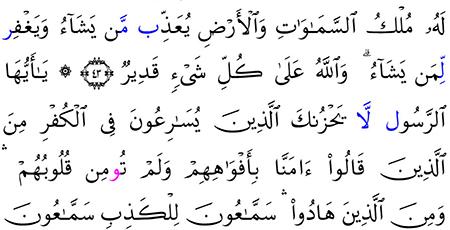 لَهُۥ مُلْكُ ٱلسَّمَـٰوَٰتِ وَٱلْأَرْضِ يُعَذِّب مَّن يَشَآءُ وَيَغْفِر
لِّمَن يَشَآءُ ۗ وَٱللَّهُ عَلَىٰ كُلِّ شَىْءٍ قَدِيرٌ ﴿٤٣﴾ ۞ يَـٰٓأَيُّهَا
ٱلرَّسُول لَّا يَحْزُنكَ ٱلَّذِينَ يُسَـٰرِعُونَ فِى ٱلْكُفْرِ مِنَ
ٱلَّذِينَ قَالُوٓا۟ ءَامَنَّا بِأَفْوَٰهِهِمْ وَلَمْ تُومِن قُلُوبُهُمْ ۛ
وَمِنَ ٱلَّذِينَ هَادُوا۟ ۛ سَمَّـٰعُونَ لِلْكَذِبِ سَمَّـٰعُونَ